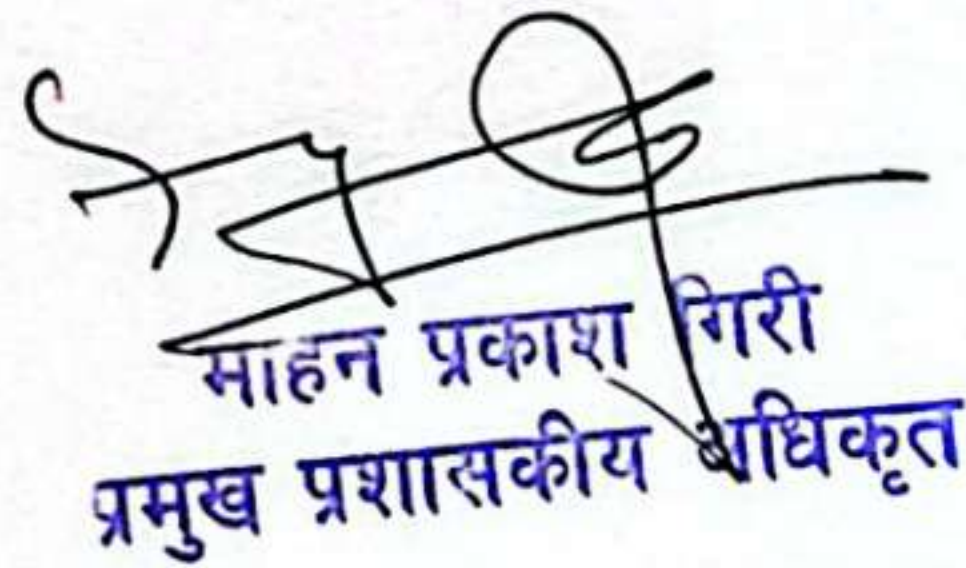 माहन प्रकाश गिरी
प्रमुख प्रशासकीय अधिकृत